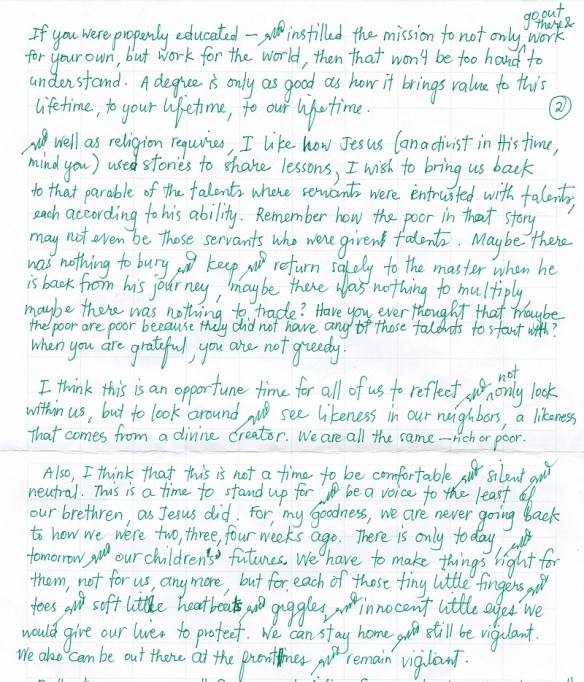 go out
there &
If you were properly educated — and instilled the mission to not only work
for your own, but work for the world, then that won't be too hard to
understand. A degree is only as good as how it brings value to this
lifetime, to your lifetime, to our lifetime.
2
and well as religion requires, I like how Jesus (an activist in His time,
mind you) used stories to share lessons, I wish to bring us back
to that parable of the talents where servants were entrusted with talents,
each according to his ability. Remember how the poor in that story
may not even be those servants who were given talents. Maybe there
was nothing to bury and keep and return safely to the master when he
is back from his journey, maybe there was nothing to multiply
maybe there was nothing to trade? Have you ever thought that maybe
the poor are poor because they did not have any of those talents to start with?
When you are grateful, you are not greedy.
I think this is an opportune time for all of us to reflect and not only look
within us, but to look around and see likeness in our neighbors, a likeness
that comes from a divine creator. We are all the same — rich or poor.
Also, I think that this is not a time to be comfortable and silent and
neutral. This is a time to stand up for and be a voice to the least of
our brethren, as Jesus did. For, my goodness, we are never going back
to how we were two, three, four weeks ago. There is only today and
tomorrow and our children's futures. We have to make things right for
them, not for us, anymore but for each of those tiny little fingers and
toes and soft little heatbeats and giggles and innocent little eyes we
would give our lives to protect. We can stay home and still be vigilant.
We also can be out there at the frontlines and remain vigilant.